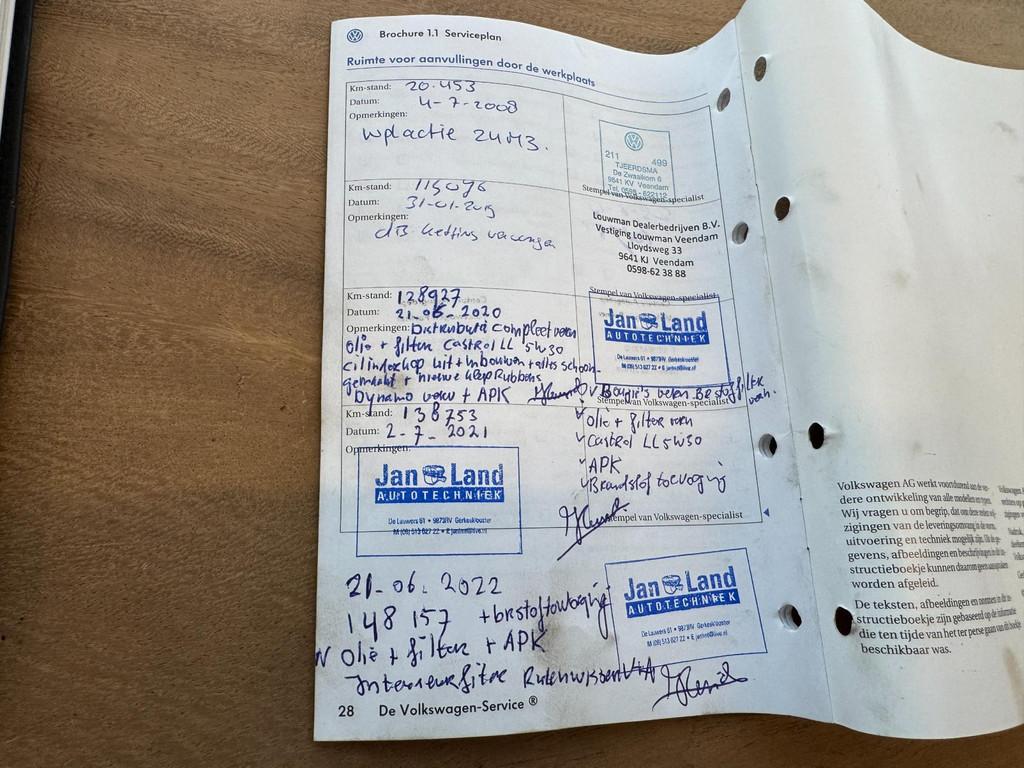 Brochure 1.1 Serviceplan
Ruimte voor aanvullingen door de werkplaats
Km-stand: 20.453
Datum: 4-7-2008
Opmerkingen:
wplactie 24M3.
211 499
TJEERDSMA
De Zwaaikom 6
9641 KV Veendam
Tel. 0598 - 622112
Stempel van Volkswagen-specialist
Km-stand:
Datum: 31-01-2019
Opmerkingen:
dB ketting vervangen
Louwman Dealerbedrijven B.V.
Vestiging Louwman Veendam
Lloydsweg 33
9641 KJ Veendam
0598-62 38 88
Stempel van Volkswagen-specialist
Km-stand: 128927
Datum: 21-06-2020
Opmerkingen: Distributie compleet vern
olie + filter Castrol LL 5W30
cilinderkop uit + inbouwen + alles schoon
gemaakt + nieuwe klep Rubbens
Dynamo verv + APK
Jan Land
AUTOTECHNIEK
De Lauwers 61 • 9873RV Gerkesklooster
M (06) 513 627 22 • E janhnl@live.nl
v Bougie's vern. Brstoffilter
vern.
Stempel van Volkswagen-specialist
Km-stand: 138753
Datum: 2-7-2021
Opmerkingen:
Jan Land
AUTOTECHNIEK
De Lauwers 61 • 9873RV Gerkesklooster
M (06) 513 627 22 • E janhnl@live.nl
Olie + filter vern
Castrol LL 5W30
APK
Brandstof toevoeging
Stempel van Volkswagen-specialist
21-06.2022
148 157 + brstoftoevoeging
N Olie + filter + APK
Interieurfilter Ruitenwissers V+A
Jan Land
AUTOTECHNIEK
De Lauwers 61 • 9873RV Gerkesklooster
M (06) 513 627 22 • E janhnl@live.nl
28 De Volkswagen-Service ®
Volkswagen AG werkt voortdurend aan de ver-
dere ontwikkeling van alle modellen en typen.
Wij vragen u om begrip, dat om deze reden wij-
zigingen van de leveringsomvang in de vorm,
uitvoering en techniek mogelijk zijn. Uit de ge-
gevens, afbeeldingen en beschrijvingen in dit in-
structieboekje kunnen daarom geen aanspraken
worden afgeleid.
De teksten, afbeeldingen en normen in dit in-
structieboekje zijn gebaseerd op de informatie
die ten tijde van het ter perse gaan van dit boekje
beschikbaar was.